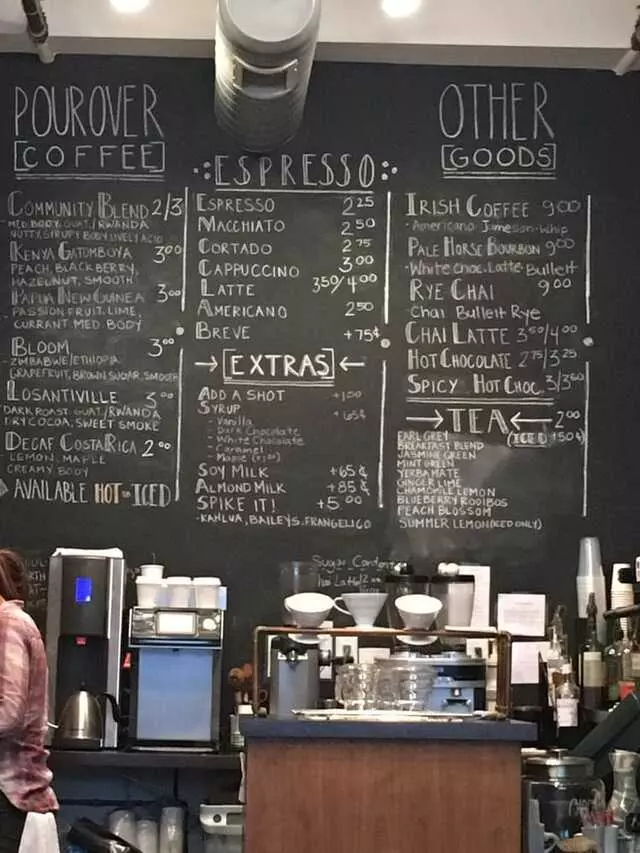 POUROVER
[COFFEE]
COMMUNITY BLEND 2/3
MED BODY, GUAT./RWANDA
NUTTY, SYRUPY BODY, LIVELY ACID
KENYA GATOMBOYA 3⁰⁰
PEACH, BLACKBERRY,
HAZELNUT, SMOOTH
PAPUA NEW GUINEA 3⁰⁰
PASSION FRUIT, LIME,
CURRANT MED BODY
BLOOM 3⁰⁰
-ZIMBABWE/ETHIOPIA
GRAPEFRUIT, BROWN SUGAR, SMOOTH
LOSANTIVILLE 3⁰⁰
DARK ROAST GUAT./RWANDA
DRY COCOA, SWEET SMOKE
DECAF COSTA RICA 2⁰⁰
-LEMON, MAPLE
CREAMY BODY
AVAILABLE HOT OR ICED
ESPRESSO
ESPRESSO 2²⁵
MACCHIATO 2⁵⁰
CORTADO 2⁷⁵
CAPPUCCINO 3⁰⁰
LATTE 3⁵⁰/4⁰⁰
AMERICANO 2⁵⁰
BREVE +75¢
→[EXTRAS]←
ADD A SHOT +1⁰⁰
SYRUP +65¢
- Vanilla
- Dark Chocolate
- White Chocolate
- Caramel
- Maple
SOY MILK +65¢
ALMOND MILK +85¢
SPIKE IT! +5.⁰⁰
-KAHLUA, BAILEYS, FRANGELICO
OTHER
[GOODS]
IRISH COFFEE 9⁰⁰
-Americano Jameson Whip
PALE HORSE BOURBON 9⁰⁰
-White choc. Latte Bulleit
RYE CHAI 9⁰⁰
Chai Bulleit Rye
CHAI LATTE 3⁵⁰/4⁰⁰
HOT CHOCOLATE 2⁷⁵/3²⁵
SPICY HOT CHOC. 3/3⁵⁰
→TEA← 2⁰⁰
(ICED +50¢)
EARL GREY
BREAKFAST BLEND
JASMINE GREEN
MINT GREEN
YERBA MATE
GINGER LIME
CHAMOMILE LEMON
BLUEBERRY ROOIBOS
PEACH BLOSSOM
SUMMER LEMON (ICED ONLY)
Sugar